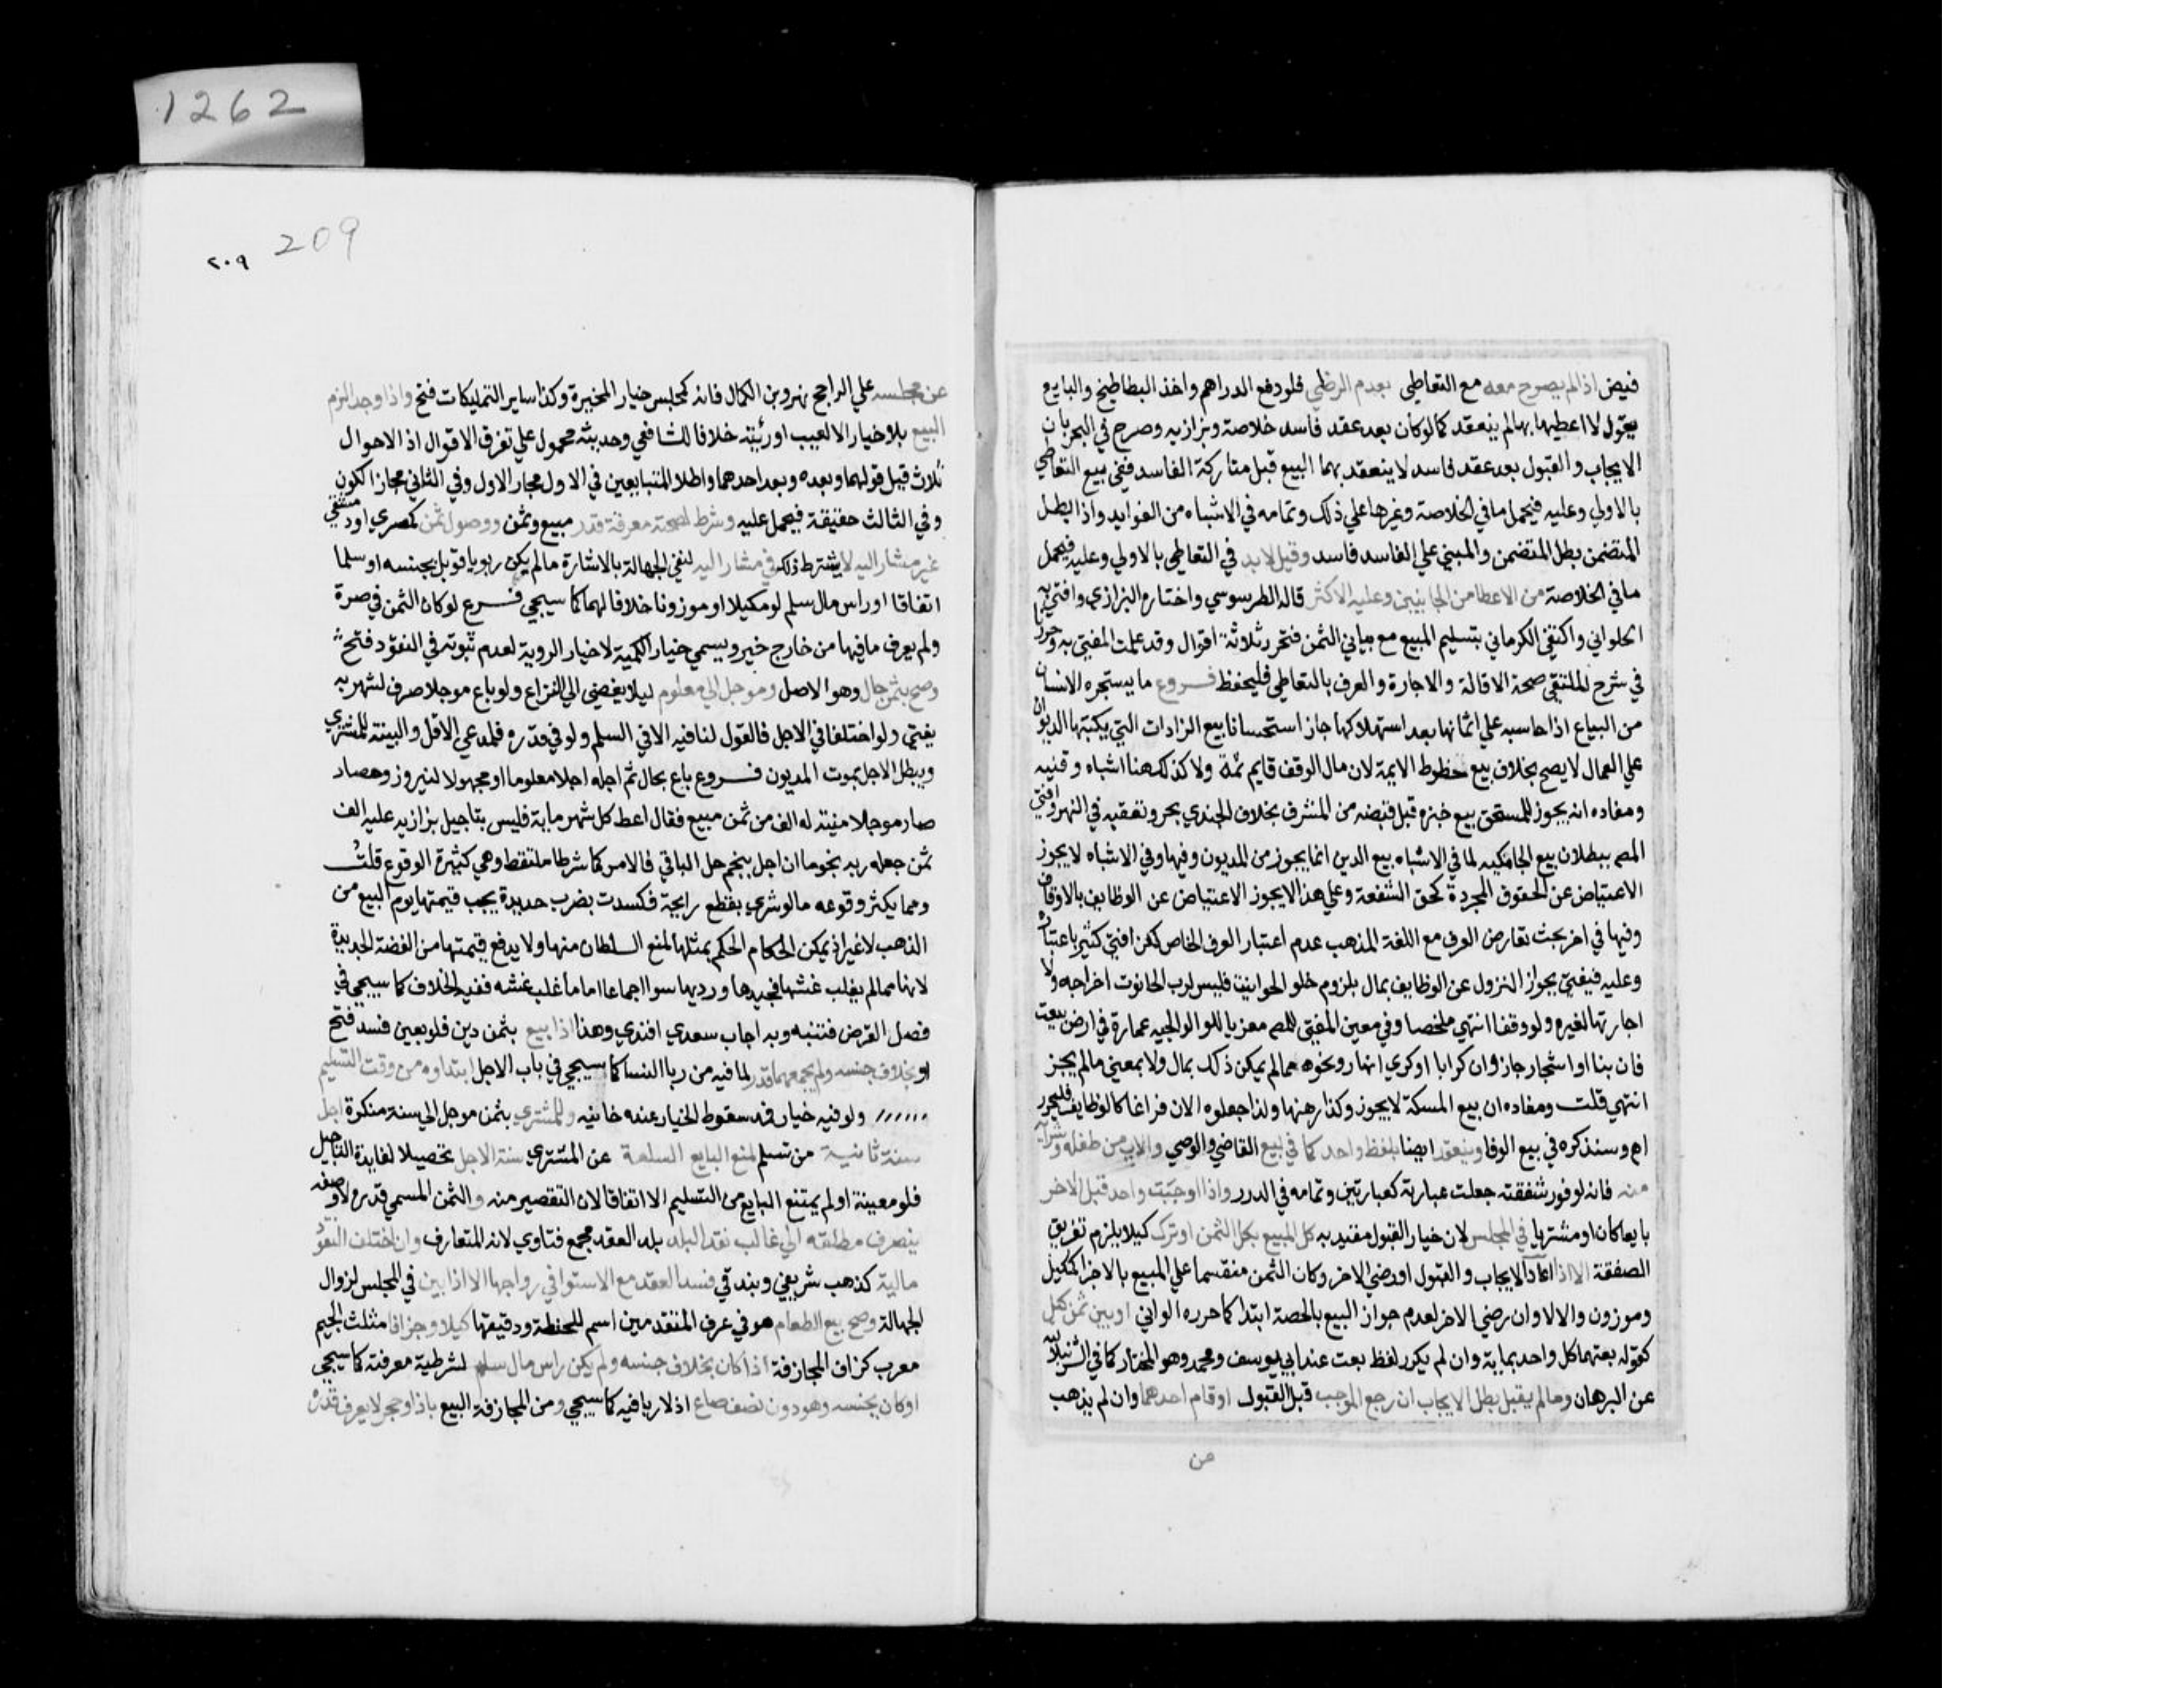 فيض اذا لم يصرح معه مع التعاطي بعدم الرظي فلو دفع الدراهم واخذ البطاطيخ والبايع
يقول لا اعطيها بها لم ينعقد كما لو كان بعد عقد فاسد خلاصة وبزازيه وصرح في البحر بان
الايجاب والقبول بعد عقد فاسد لا ينعقد بهما البيع قبل متاركة الفاسد ففي بيع التعاطي
بالاولي وعليه فيحمل ما في الخلاصة وغيرها علي ذلك وتمامه في الاشباه من الفوايد واذا بطل
المتضمن بطل المتضمن والمبني علي الفاسد فاسد وقيل لا بد في التعاطي بالاولي وعليه فيحمل
ما في الخلاصة من الاعطا من الجانبين وعليه الاكثر قاله الطرسوسي واختاره البزازي وافتي به
الحلواني واكتفي الكرماني بتسليم المبيع مع بيان الثمن فتحرر ثلاثة اقوال وقد علمت المفتي به وحررنا
في شرح الملتقي صحة الاقالة والاجارة والصرف بالتعاطي فليحفظ فروع ما يستجره الانسان
من البياع اذا حاسبه علي اثمانها بعد استهلاكها جاز استحسانا بيع الزادات التي يكتبها الديوان
علي العمال لا يصح بخلاف بيع حظوظ الايمة لان مال الوقف قايم ثمة ولا كذلك هنا اشباه وقنيه
ومفاده انه يجوز للمستحق بيع خبزه قبل قبضه من المشرف بخلاف الجندي بحر وتعقبه في النهر وافتي
المص ببطلان بيع الجامكيه لما في الاشباه بيع الدين انما يجوز من المديون وفيها وفي الاشباه لا يجوز
الاعتياض عن الحقوق المجردة كحق الشفعة وعلي هذا لا يجوز الاعتياض عن الوظايف بالاوقاف
وفيها في اخر بحث تعارض العرف مع اللغة المذهب عدم اعتبار العرف الخاص لكن افتي كثير باعتباره
وعليه فيفتي بجواز النزول عن الوظايف بمال بلزوم خلو الحوانيت فليس لرب الحانوت اخراجه ولا
اجارتها لغيره ولو وقفا انتهي ملخصا وفي معين المفتي للمص معزيا للولوالجيه عمارة في ارض بيعت
فان بنا او اشجار جاز وان كرابا او كري انهار ونحوه مما لم يكن ذلك بمال ولا بمعني مال لم يجز
انتهي قلت ومفاده ان بيع المسكة لا يجوز وكذا رهنها ولذا جعلوه الان فراغا كالوظايف فليحرر
اه وسنذكره في بيع الوفا وينعقد ايضا بلفظ واحد كما في بيع القاضي والوصي والاب من طفله وشرآيه
منه فانه لوفور شفقته جعلت عبارته كعبارتين وتمامه في الدرر واذا اوجبت واحد قبل الاخر
بايعا كان او مشتريا في المجلس لان خيار القبول مقيد به كل المبيع بكل الثمن او ترك كيلا يلزم تفريق
الصفقة الا اذا اعاد الايجاب والقبول او رضي الاخر وكان الثمن منقسما علي المبيع بالاجزا كمكيل
وموزون والا لا وان رضي الاخر لعدم جواز البيع بالحصة ابتدا كما حرره الواني او بين ثمن كل
كقوله بعتهما كل واحد بماية وان لم يكرر لفظ بعت عند ابي يوسف ومحمد وهو المختار كما في الشرنبلاليه
عن البرهان وما لم يقبل بطل الايجاب ان رجع الموجب قبل القبول او قام احدهما وان لم يذهب
من
1262
209
٢٠٩
عن مجلسه علي الراجح نهر وبن الكمال فانه كمجلس خيار المخيرة وكذا ساير التمليكات فتح واذا وجد الزم
البيع بلا خيار الا لعيب او رئية خلافا للشافعي وحديثه محمول علي تفرق الاقوال اذ الاحوال
ثلاث قبل قولهما وبعده وبعد احدهما واطلا المتبايعين في الاول مجاز الاول وفي الثاني مجاز الكون
وفي الثالث حقيقة فيحمل عليه وشرط لصحته معرفة قدر مبيع وثمن ووصول ثمن كمصري او دمشقي
غير مشار اليه لا يشترط ذلك في مشار اليه لنفي الجهالة بالاشارة ما لم يكن ربويا قوبل بجنسه او سلما
اتفاقا او راس مال سلم لو مكيلا او موزونا خلافا لهما كما سيجي فرع لو كان الثمن في صرة
ولم يعرف ما فيها من خارج خير ويسمي خيار الكمية لا خيار الروية لعدم ثبوته في النقود فتح
وصح بثمن حال وهو الاصل وموجل الي معلوم ليلا يفضي الي النزاع ولو باع موجلا صرف لشهر به
يفتي ولو اختلفا في الاجل فالقول لنافيه الا في السلم ولو في قدره فلمدعي الاقل والبينة للمشتري
ويبطل الاجل بموت المديون فروع باع بحال ثم اجله اجلا معلوما او مجهولا لنيروز وحصاد
صار موجلا منيته له الف من ثمن مبيع فقال اعط كل شهر ماية فليس بتاجيل بزازيه عليه الف
ثمن جعله ربه نجوما ان اخل بنجم حل الباقي فالامر كما شرطا ملتقط وهي كثيرة الوقوع قلت
ومما يكثر وقوعه ما لو شري بقطع رايجة فكسدت بضرب جديدة يجب قيمتها يوم البيع من
الذهب لا غير اذ يمكن الحكام الحكم بمثلها لمنع السلطان منها ولا يدفع قيمتها من الفضة الجديدة
لانها ما لم يغلب غشها فجيدها ورديها سوا اجماعا اما ما غلب غشه ففيه الخلاف كما سيجي في
فصل القرض فتنبه وبه اجاب سعدي افندي وهذا اذا بيع بثمن دين فلو بعين فسد فتح
او بخلاف جنسه ولم يجمعهما قدر لما فيه من ربا النسا كما سيجي في باب الاجل ابتداوه من وقت التسليم
ولو فيه خيار فمذ سقوط الخيار عنده خانيه وللمشتري بثمن موجل الي سنة منكرة اجل
سنة ثانية من تسلم لمنع البايع السلعة عن المشتري سنة الاجل تحصيلا لفايدة التاجيل
فلو معينة او لم يمتنع البايع من التسليم لا اتفاقا لان التقصير منه والثمن المسمي قدره لا وصفه
ينصرف مطلقه الي غالب نقد البلد بلد العقد مجمع فتاوي لانه المتعارف وان اختلف النقود
مالية كذهب شريفي وبندقي فسد العقد مع الاستوا في رواجها الا اذا بين في المجلس لزوال
الجهالة وصح بيع الطعام هو في عرف المتقدمين اسم للحنطة ودقيقها كيلا وجزافا مثلث الجيم
معرب كزاف المجازفة اذا كان بخلاف جنسه ولم يكن راس مال سلم لشرطية معرفته كما سيجي
او كان بجنسه وهو دون نصف صاع اذ لا ربا فيه كما سيجي ومن المجازفة البيع باذا وحجر لا يعرف قدره